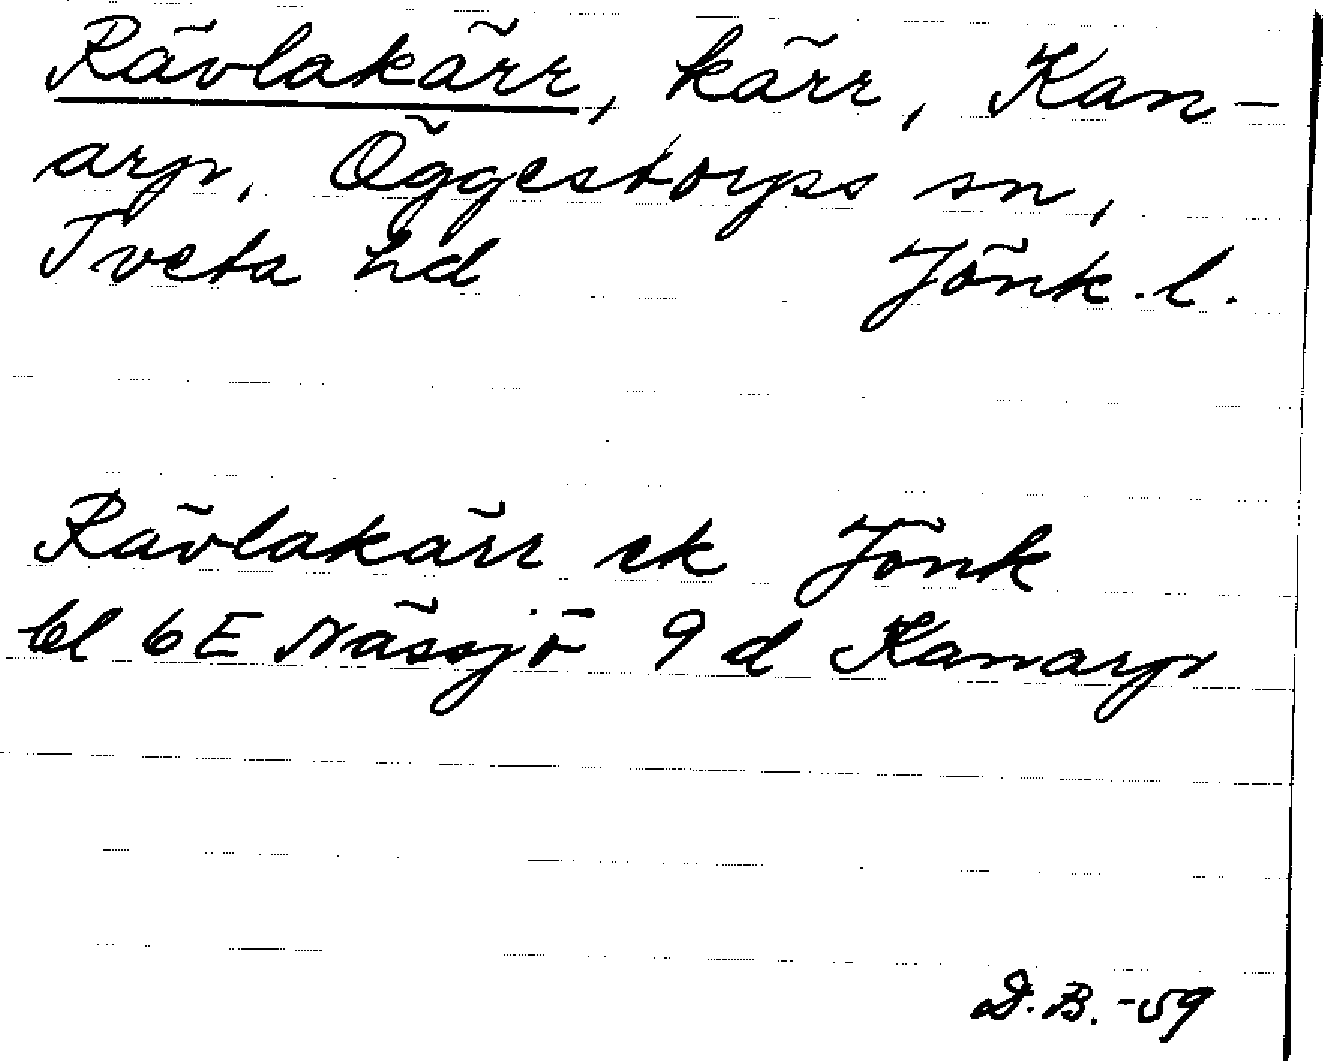 Rävlakärr, kärr, Kan-
arp, Öggestorps sn,
Tveta hd Jönk. l.
Rävlakärr ek Jönk
bl 6E Nässjö 9 d Kanarp
D.B. -59